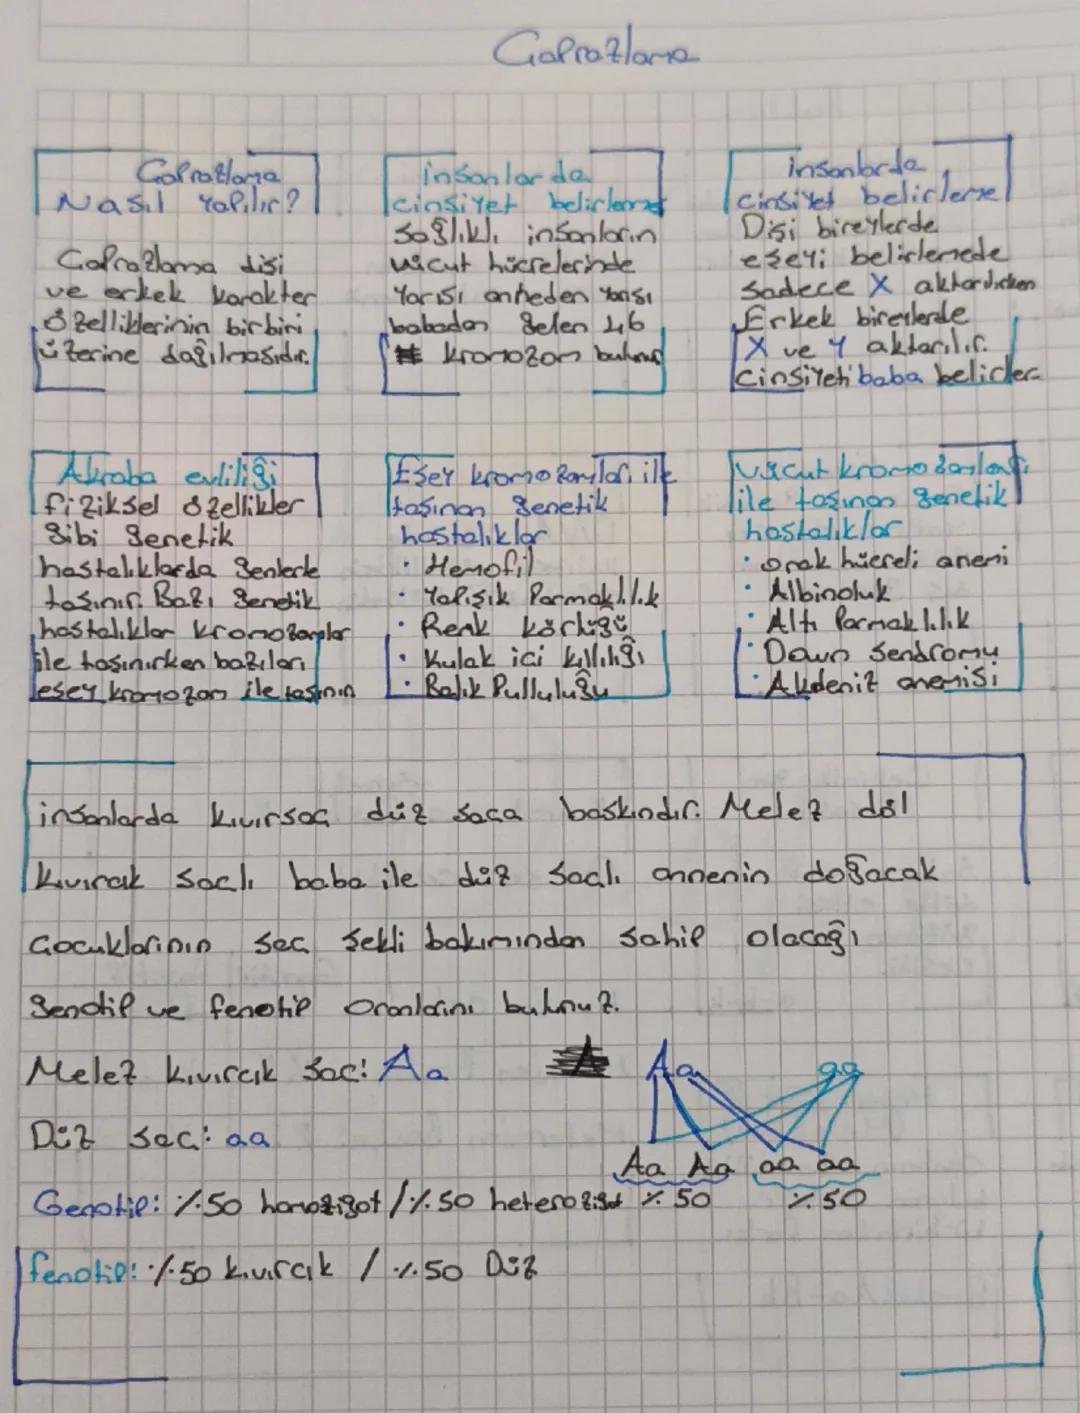 Çaprazlama
Çaprazlama
Nasıl Yapılır?
Çaprazlama dişi
ve erkek karakter
özelliklerinin birbiri
üzerine dağılmasıdır.
insanlarda
cinsiyet belirleme
Sağlıklı insanların
vücut hücrelerinde
Yarısı anneden Yarısı
babadan gelen 46
kromozom bulunur
insanlarda
cinsiyet belirleme
Dişi bireylerde
eşeyi belirlemede
sadece X aktarılırken
Erkek bireylerde
X ve Y aktarılır.
Cinsiyeti baba belirler
Akraba evliliği
fiziksel özellikler
gibi genetik
hastalıklarda genlerle
taşınır. Bazı genetik
hastalıklar kromozomlar
ile taşınırken bazıları
eşey kromozom ile taşınır
Eşey kromozomları ile
taşınan genetik
hastalıklar
• Hemofil
• Yapışık Parmaklılık
• Renk körlüğü
• Kulak içi kıllılığı
• Balık Pulluluğu
Vücut kromozomları
ile taşınan genetik
hastalıklar
• orak hücreli anemi
• Albinoluk
• Altı Parmaklılık
• Down Sendromu
• Akdeniz anemisi
insanlarda kıvırsaç düz saça baskındır. Melez döl
kıvırcık saçlı baba ile düz saçlı annenin doğacak
Çocuklarının saç şekli bakımından sahip olacağı
genotip ve fenotip oranlarını bulunuz.
Melez kıvırcık saç: Aa
Aa aa
Düz saç: aa
Aa Aa aa aa
Genotip: %50 homozigot / %50 heterozigot
%50 %50
fenotip: %50 kıvırcık / %50 Düz